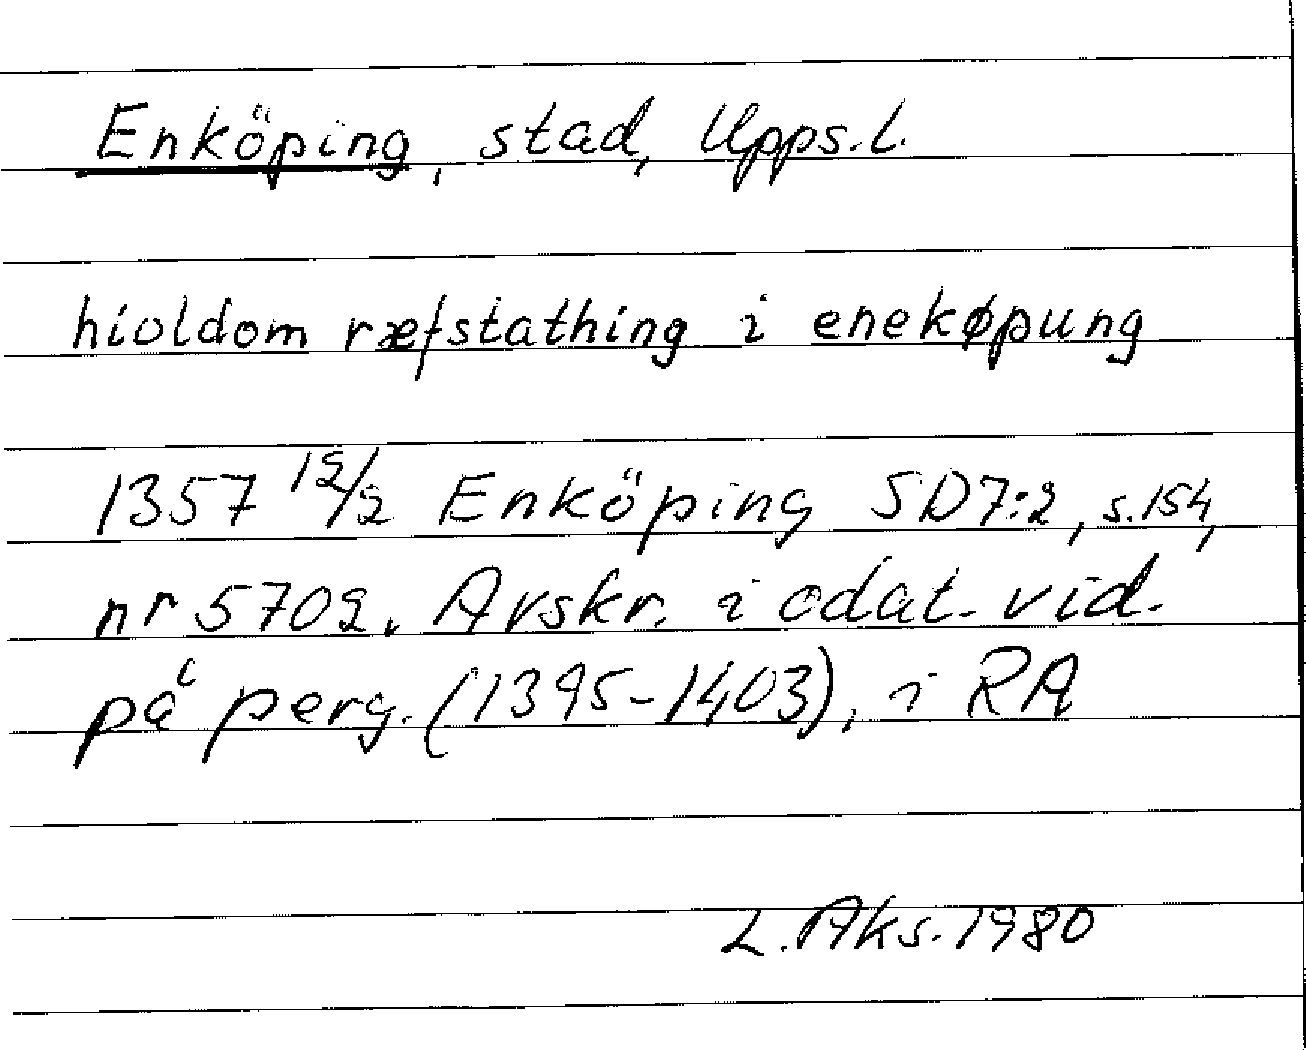 Enköping, stad, Upps.l.
hioldom ræfstathing i enekøpung
1357 12/2 Enköping SD7:2, s.154,
nr 5702. Avskr. i odat. vid.
på perg. (1395-1403), i RA
L.Aks. 1980